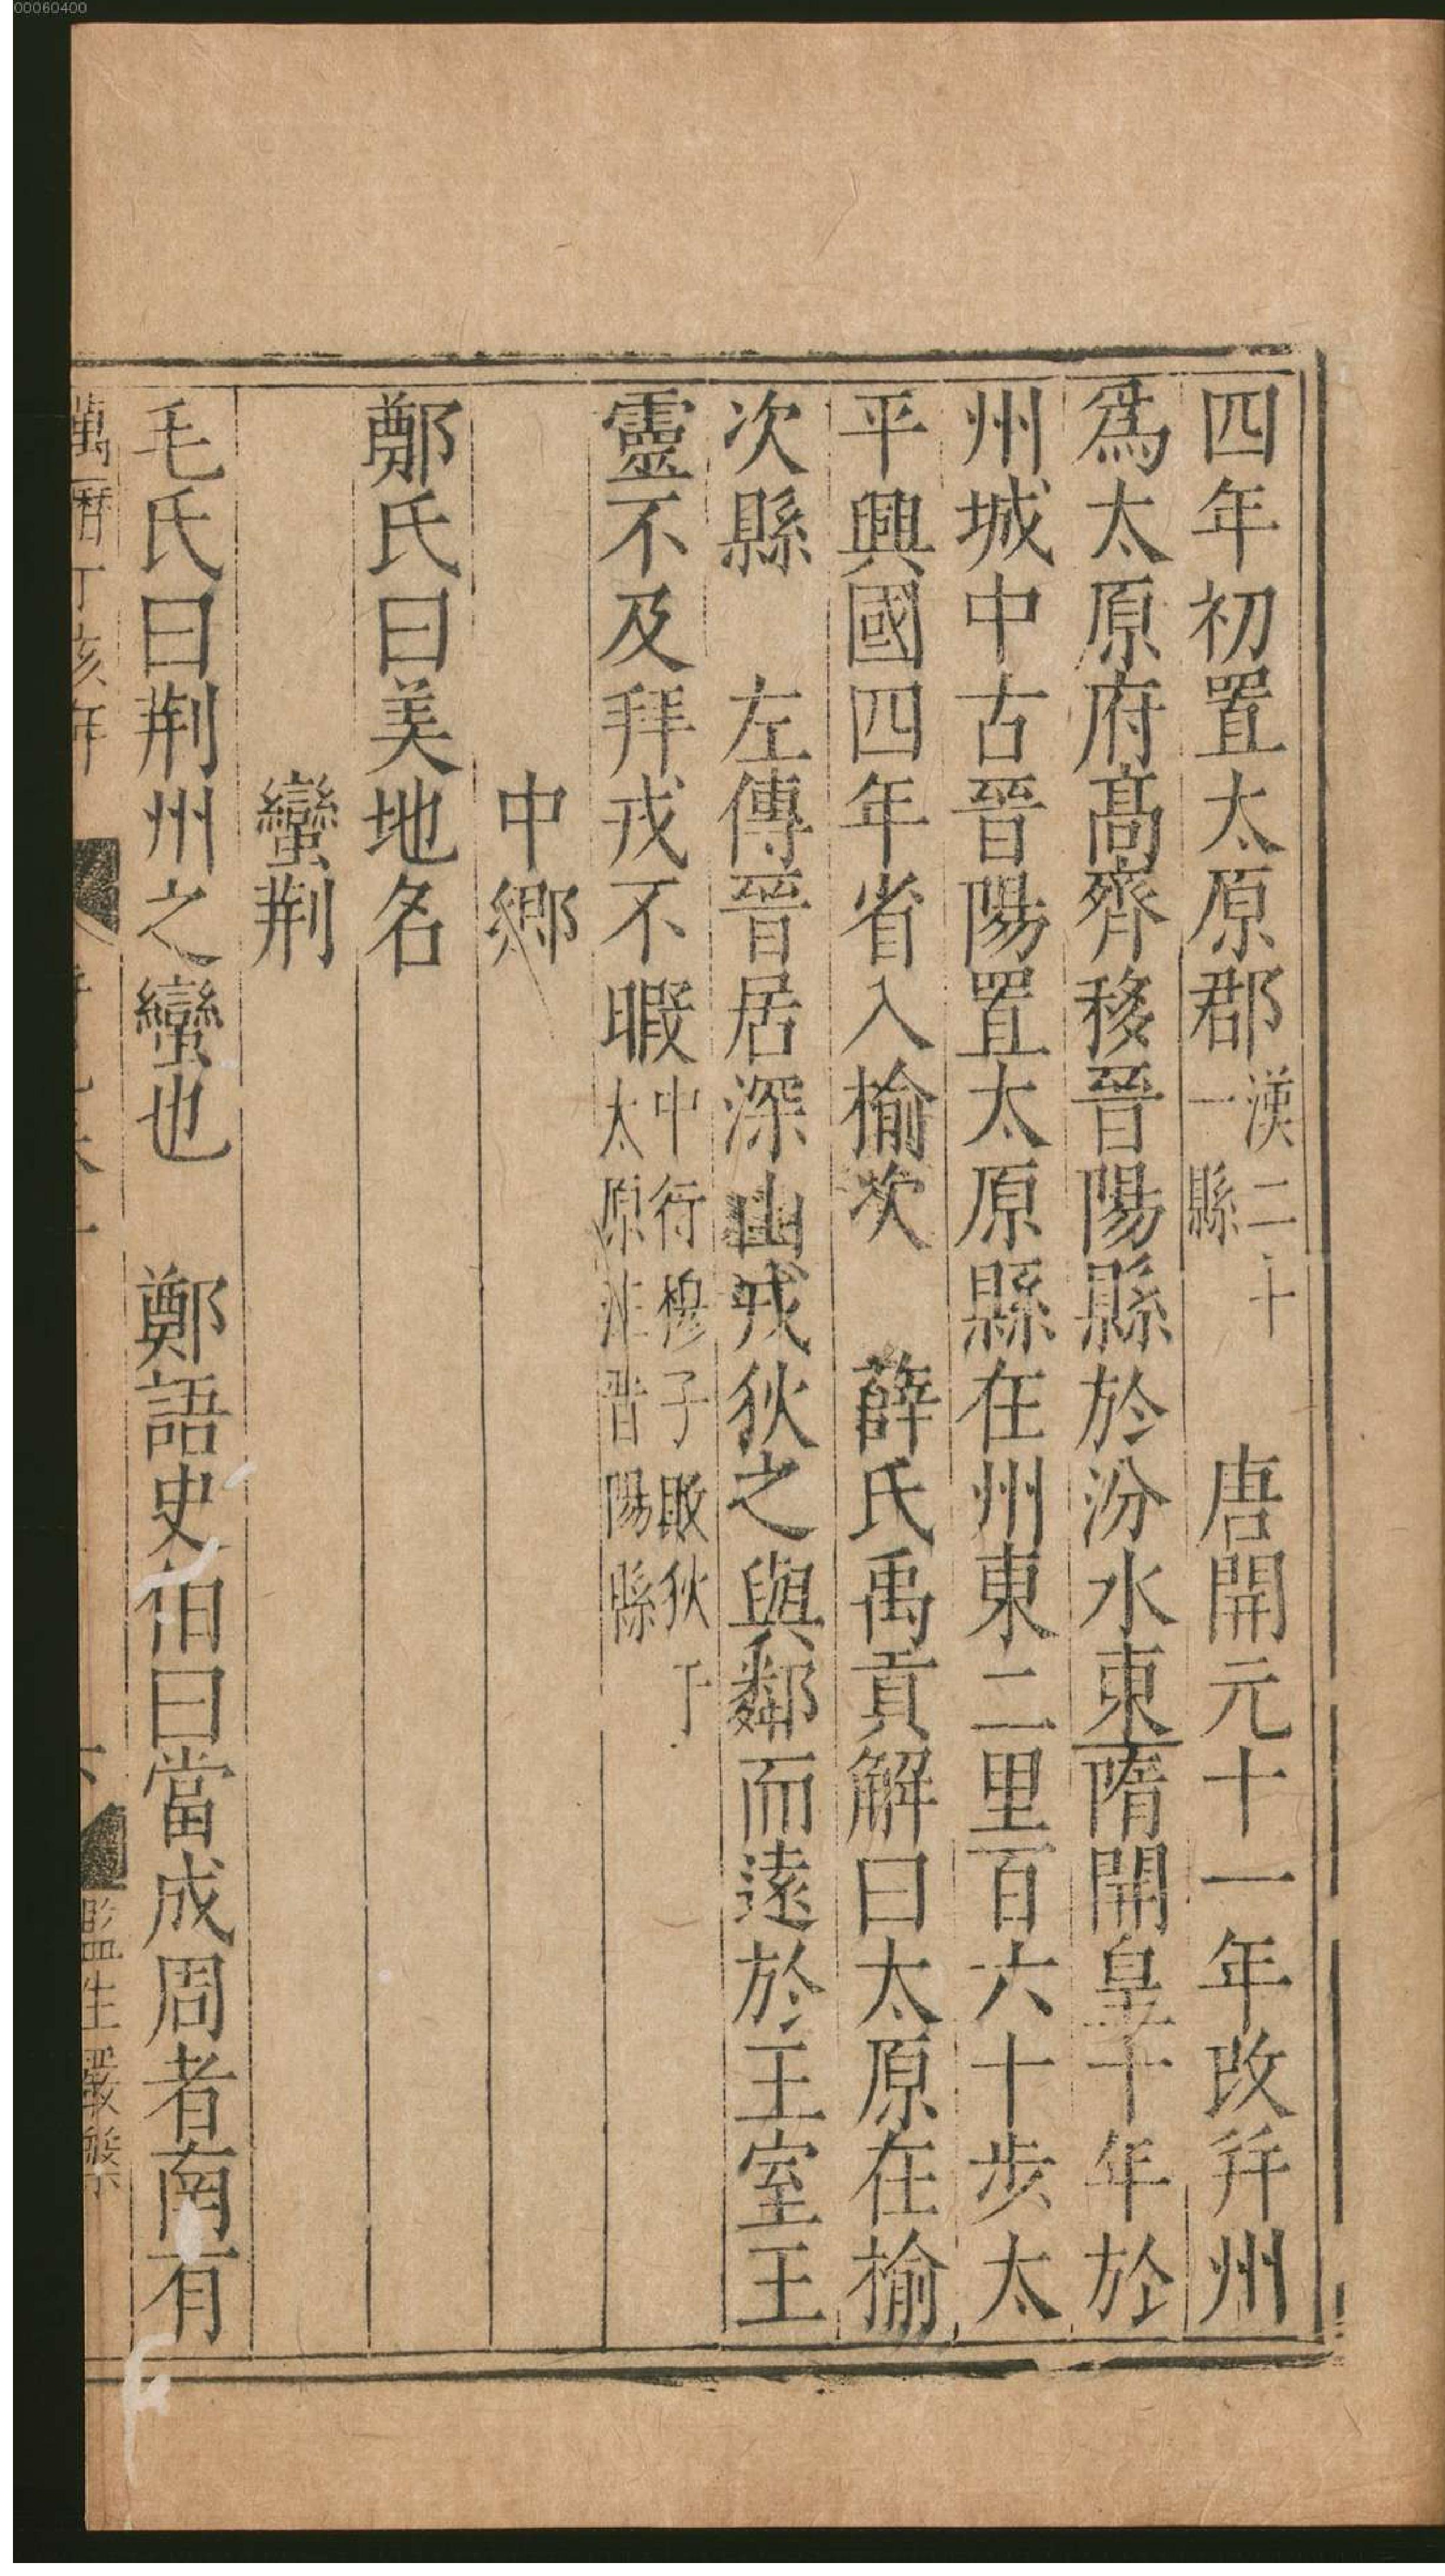 00060400
四年初置太原郡漢二十一縣　唐開元十一年改幷州
爲太原府高齊移晉陽縣於汾水東隋開皇十年於
州城中古晉陽置太原縣在州東二里百六十步太
平興國四年省入榆次　薛氏禹貢解曰太原在榆
次縣　左傳晉居深山戎狄之與鄰而遠於王室王
靈不及拜戎不暇中行穆子敗狄于太原注晉陽縣
中鄉
鄭氏曰美地名
蠻荆
毛氏曰荆州之蠻也　鄭語史伯曰當成周者南有
萬曆丁亥年
監生嚴槃